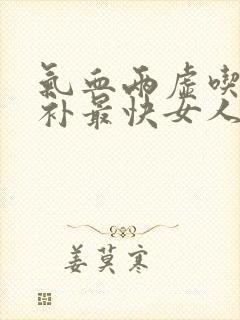 氣血兩虛喫
补最快女人
姜莫寒